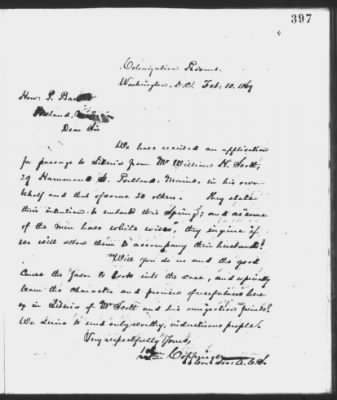 397
Colonization Rooms.
Washington, D.C. Feb. 10. 1869
Hon. P. Bar
Portland,
Dear Sir
We have received an application
for passage to Liberia from Mr William H. Scott,
29 Hammond St. Portland, Maine, in his own
behalf and that of some 20 others. They state
their intention to embark this Spring; and as some
of the men have white wives, they inquire if
we will allow them to accompany their husbands?
Will you do us and the good
Cause the favor to look into the case, and especially
learn the character and promise of usefulness here
& in Liberia of Mr Scott and his emigration friends?
We desire to send only worthy, industrious people.
Very respectfully Yours,
Wm Coppinger
Cor. Sec. A.C.S.